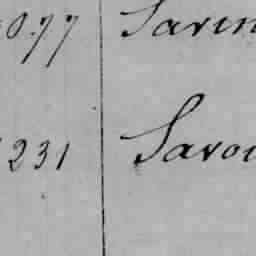 0.77 Savin
231 Savoi